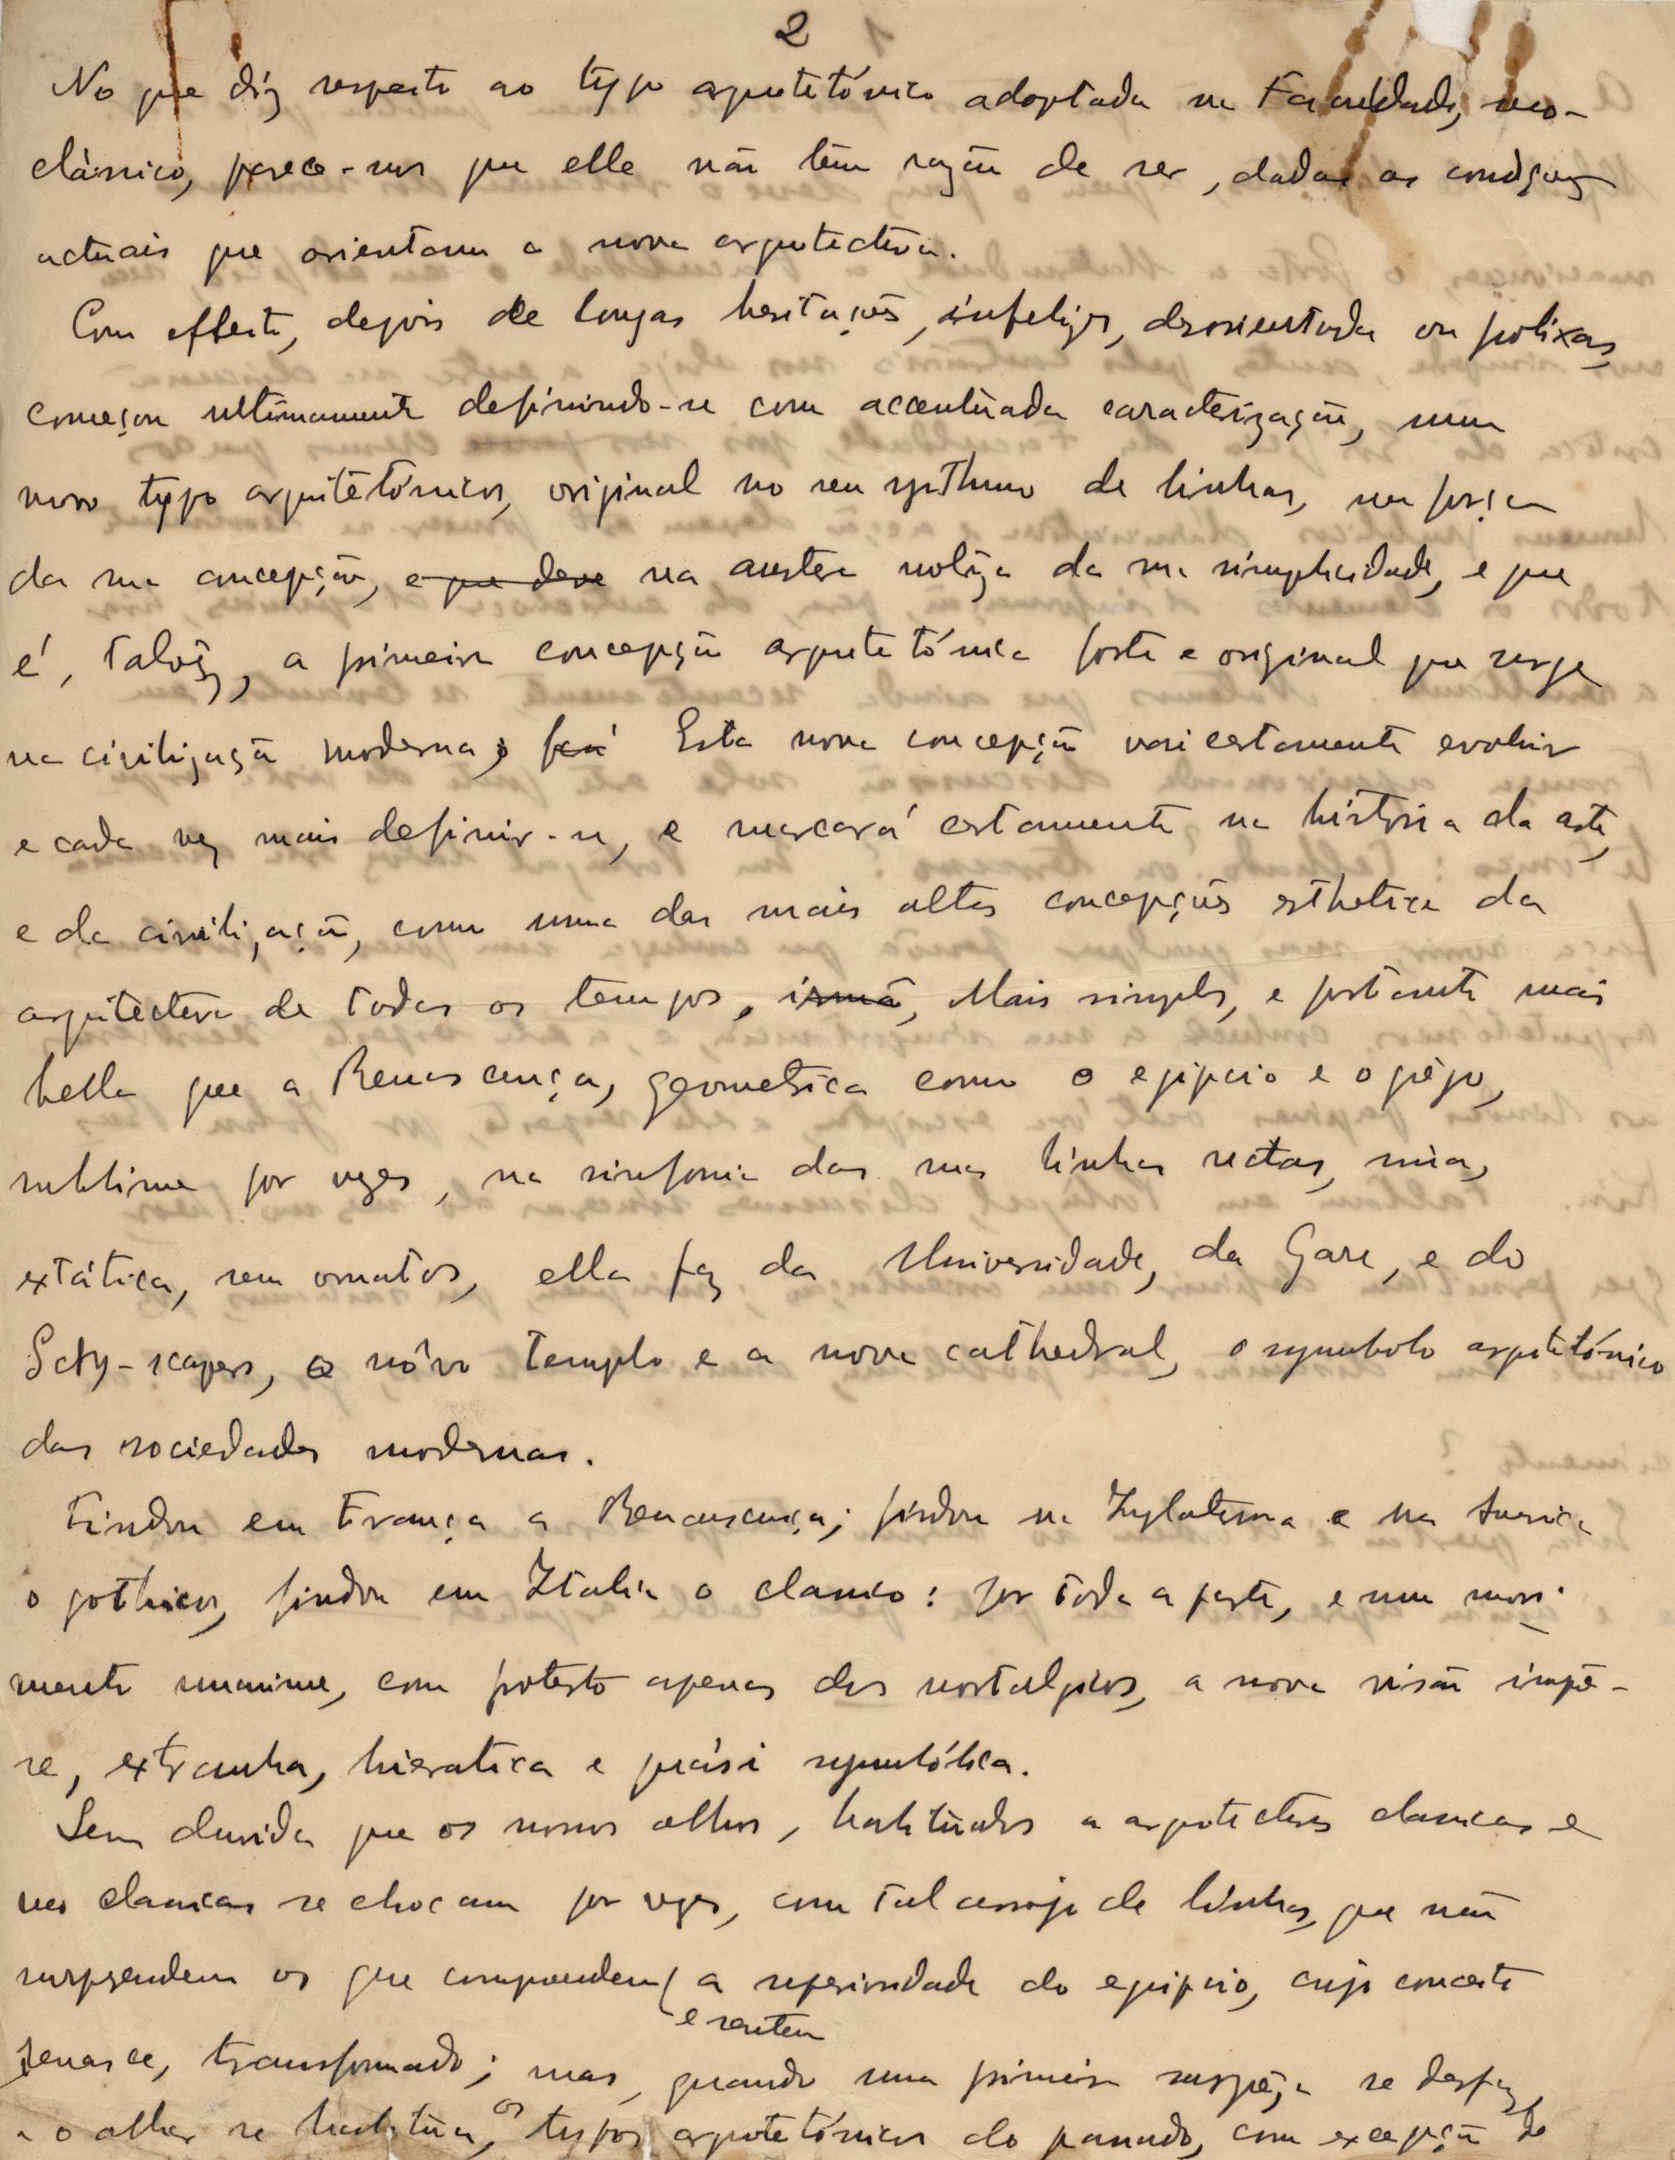 2
No que diz respeito ao typo arquitetónico adoptado na Faculdade, neo-
clássico, parece-nos que elle não tem razão de ser, dadas as condições
actuais que orientam a nova arquitectura.
Com effeito, depois de longas hesitações, infelizes, desorientadas ou prolixas,
começou ultimamente definindo-se com accentuada caracterização, num
novo typo arquitetónico, original no seu rythmo de linhas, na força
da sua concepção, e que deve na austera nobreza da sua simplicidade, e que
é, talvez, a primeira concepção arquitetónica forte e original que surge
na civilização moderna; Esta nova concepção vai certamente evoluir
e cada vez mais definir-se, e marcará certamente na história da arte,
e da civilização, como uma das mais altas concepções esthetica da
arquitectura de todos os tempos, irmã, Mais simples, e portanto mais
bella que a Renascença, geometrica como o egipcio e o grego,
sublime por vezes, na sinfonia das suas linhas rectas, nuas,
extática, sem ornatos, ella faz da Universidade, da Gare, e do
Scky-scapers, o nôvo templo e a nova cathedral, o symbolo arquitetónico
das sociedades modernas.
Findou em França a Renascença; findou na Inglaterra e na Suecia
o gothico, findou em Italia o classico: por toda a parte, e num movi-
mento unanime, com protesto apenas dos nostalgicos, a nova visão impõe-
se, extranha, hieratica e quási symbólica.
Sem duvida que os nossos olhos, habituados a arquitecturas classicas e
neo classicas se chocam por vezes, com tal arrojo de linhas, que não
surprendem os que comprendem a superioridade do egipcio, cujo conceito
e sentem
renasce, transformado; mas, quando uma primeira surprêza se desfaz,
e o olhar se habitua, os typos arquitetónicos do passado, com excepção do